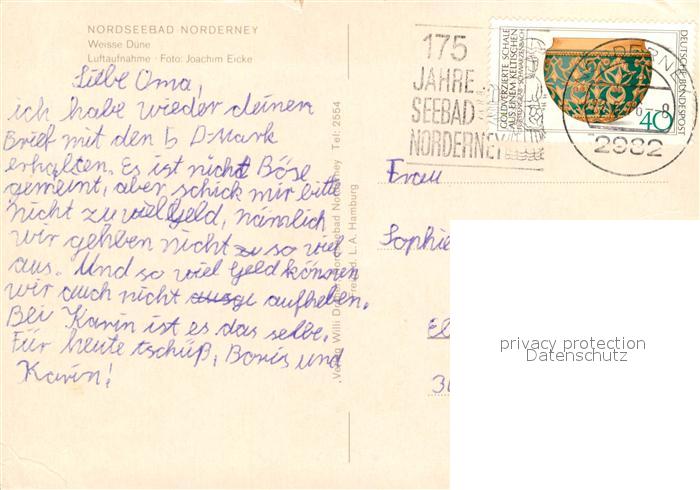 NORDSEEBAD NORDERNEY
Weisse Düne
Luftaufnahme · Foto: Joachim Eicke
Liebe Oma,
ich habe wieder deinen
Brief mit den 5 D-Mark
erhalten. Es ist nicht Böse
gemeint, aber schick mir bitte
nicht zu viel Geld, nämlich
wir gehben nicht zu so viel
aus. Und so viel Geld können
wir auch nicht ausge aufheben.
Bei Karin ist es das selbe.
Für heute tschüß, Boris und
Karin!
Nordseebad Norderney Tel: 2554
L.A. Hamburg
175
JAHRE
SEEBAD
NORDERNEY
GOLDVERZIERTE SCHALE
AUS EINEM KELTISCHEN
DEUTSCHE BUNDESPOST
40
2982
Frau
Sophie
El
privacy protection
Datenschutz